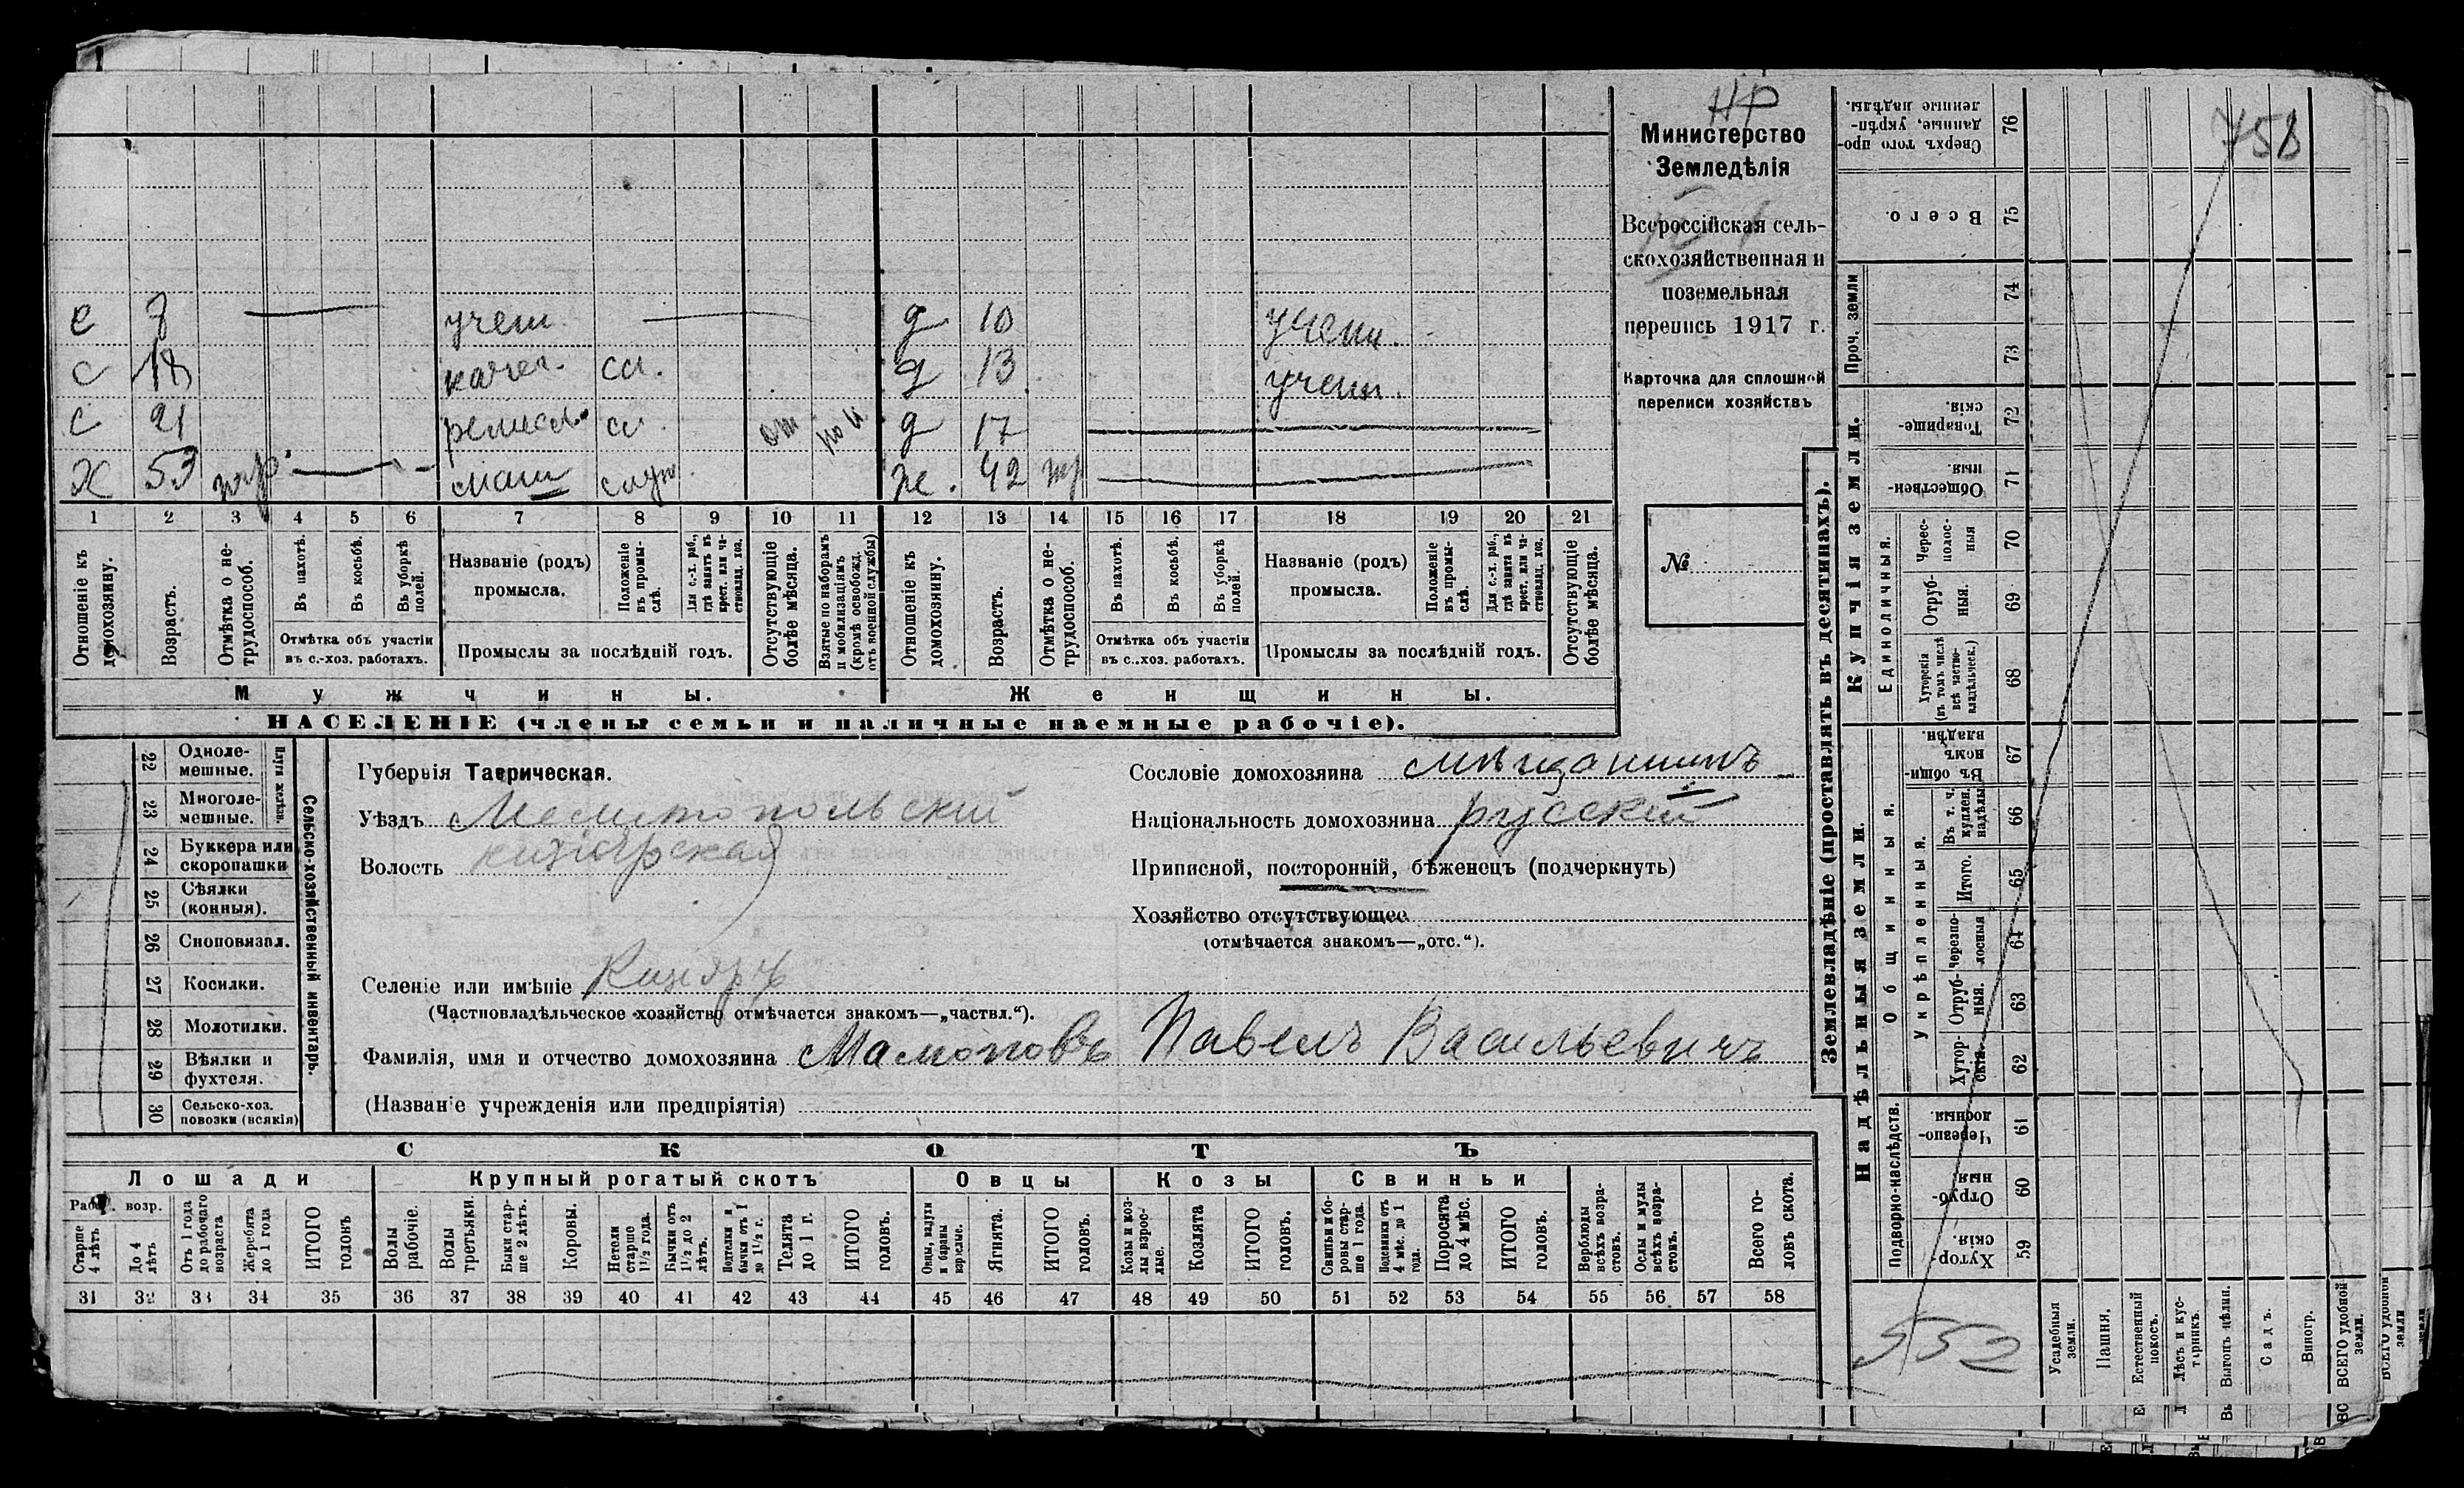 НР
758
Министерство
Земледѣлія
Всероссійская сель-
скохозяйственная и
поземельная
перепись 1917 г.
Карточка для сплошной
переписи хозяйствъ
№
с 8 учен. д 10 учен.
с 18 сл. д 13 учен.
с 21 ремесл. сл. от д 17
х 53 служ. ж. 42
1 2 3 4 5 6 7 8 9 10 11 12 13 14 15 16 17 18 19 20 21
Отношеніе къ домохозяину.
Возрастъ.
Отмѣтка о не-трудоспособ.
Въ пахотѣ.
Въ косьбѣ.
Въ уборкѣ полей.
Отмѣтка объ участіи
въ с.-хоз. работахъ.
Названіе (родъ)
промысла.
Положеніе въ промы-слѣ.
Для с.-х. раб., гдѣ занятъ въ крест. или ча-стновлад. хоз.
Промыслы за послѣдній годъ.
Отсутствующіе болѣе мѣсяца.
Взятые по наборамъ и мобилизаціямъ (кромѣ освобожд. отъ военной службы)
Отношеніе къ домохозяину.
Возрастъ.
Отмѣтка о не-трудоспособ.
Въ пахотѣ.
Въ косьбѣ.
Въ уборкѣ полей.
Отмѣтка объ участіи
въ с.-хоз. работахъ.
Названіе (родъ)
промысла.
Положеніе въ промы-слѣ.
Для с.-х. раб., гдѣ занята въ крест. или ча-стновлад. хоз.
Промыслы за послѣдній годъ.
Отсутствующіе болѣе мѣсяца.
Мужчины. Женщины.
НАСЕЛЕНІЕ (члены семьи и наличные наемные рабочіе).
22 Одноле-мешные.
23 Многоле-мешные.
Плуги желѣзн.
24 Буккера или скоропашки
25 Сѣялки (конныя).
26 Сноповязал.
27 Косилки.
28 Молотилки.
29 Вѣялки и фухтеля.
30 Сельско-хоз. повозки (всякія)
Сельско-хозяйственный инвентарь.
Губернія Таврическая.
Уѣздъ Мелитопольскій
Волость Кизіярская
Селеніе или имѣніе Кизіяръ
(Частновладѣльческое хозяйство отмѣчается знакомъ—„частвл.“).
Фамилія, имя и отчество домохозяина Мамоновъ Павелъ Васильевичъ
(Названіе учрежденія или предпріятія)
Сословіе домохозяина мѣщанинъ
Національность домохозяина русскій
Приписной, посторонній, бѣженецъ (подчеркнуть)
Хозяйство отсутствующее
(отмѣчается знакомъ—„отс.“).
СКОТЪ
Лошади Крупный рогатый скотъ Овцы Козы Свиньи
Рабоч. возр.
Старше 4 лѣтъ
До 4 лѣтъ
Отъ 1 года до рабочаго возраста
Жеребята до 1 года
ИТОГО головъ
Волы рабочіе.
Волы третьяки.
Быки стар-ше 2 лѣтъ.
Коровы.
Нетели старше 1½ года.
Бычки отъ 1½ до 2 лѣтъ.
Подтелки и бычки отъ 1 до 1½ г.
Телята до 1 г.
ИТОГО головъ.
Овцы, валухи и бараны взрослые.
Ягнята.
ИТОГО головъ.
Козы и коз-лы взрос-лые.
Козлята
ИТОГО головъ.
Свиньи и бо-ровы стар-ше 1 года.
Подсвинки отъ 4 мѣс. до 1 года.
Поросята до 4 мѣс.
ИТОГО головъ.
Верблюды всѣхъ возра-стовъ.
Ослы и мулы всѣхъ возра-стовъ.
Всего го-ловъ скота.
31 32 33 34 35 36 37 38 39 40 41 42 43 44 45 46 47 48 49 50 51 52 53 54 55 56 57 58
Землевладѣніе (проставлять въ десятинахъ).
Купчія земли.
Надѣльныя земли.
Сверхъ того про-данные, укрѣп-ленные надѣлы. 76
Всего. 75
Проч. земли 74
73
Товарище-скія. 72
Обществен-ныя. 71
Единоличныя.
Черес-полос-ныя 70
Отруб-ныя. 69
Хуторскія (въ томъ числѣ всѣ частно-владѣльческ.) 68
Общинныя.
Въ общин-номъ владѣн. 67
Укрѣпленныя.
Въ т. ч. куплен. надѣлы 66
Итого. 65
Черезпо-лосныя 64
Отруб-ныя. 63
Хутор-скія. 62
Подворно-наслѣдств.
Черезпо-лосныя. 61
Отруб-ныя. 60
Хутор-скія. 59
552
Усадебныя земли.
Пашня.
Естественный покосъ.
Лѣсъ и кус-тарникъ.
Выгонъ цѣлин.
Садъ.
Виногр.
ВСЕГО удобной земли.
ВСЕГО удобной земли